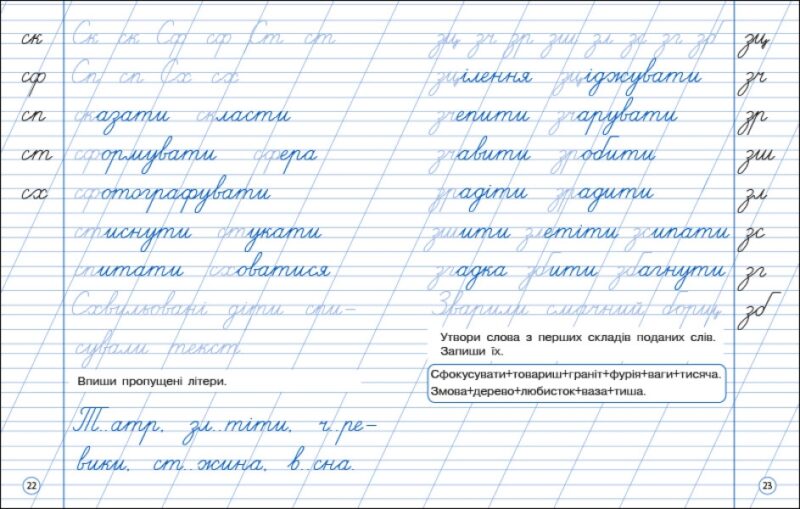 ск
Ск ск Сф сф Ст ст
сф
Сп сп Сх сх
сп
сказати скласти
ст
сформувати сфера
сх
сфотографувати
стиснути стукати
спитати сховатися
Схвильовані діти спи-
сували текст
Впиши пропущені літери.
Т..атр, зл..тіти, ч..ре-
вики, ст..жина, в..сна.
22
зц зч зр зш зл зс зг зб
зц
зцілення зціджувати
зч
зчепити зчарувати
зр
зчавити зробити
зш
зрадіти зрадити
зл
зшити злетіти зсипати
зс
згадка збити збагнути
зг
Зварили смачний борщ
зб
Утвори слова з перших складів поданих слів.
Запиши їх.
Сфокусувати+товариш+граніт+фурія+ваги+тисяча.
Змова+дерево+любисток+ваза+тиша.
23